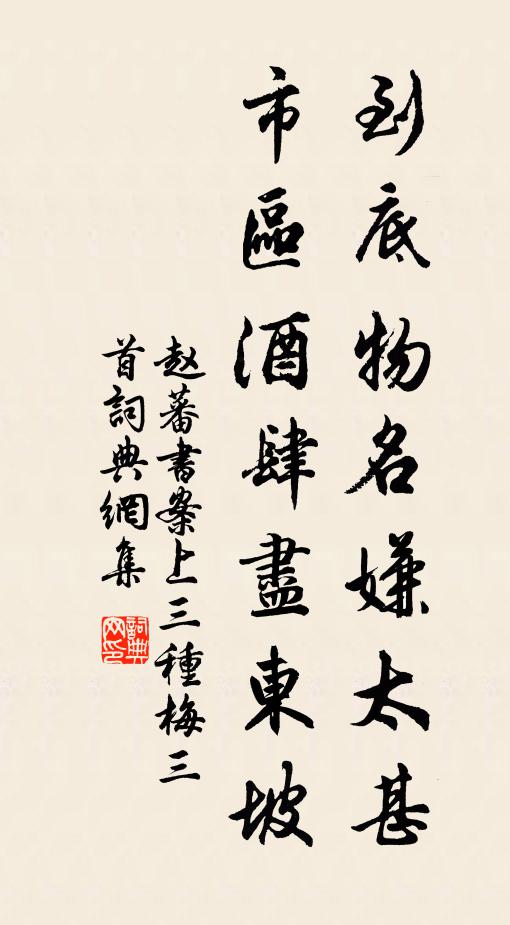 到底物名嫌太甚
市區酒肆盡東坡
赵蕃書案上三種梅三
首詞典網集
詞典
网印